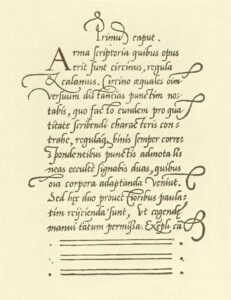 Primum caput.
Arma scriptoria quibus opus
erit sunt circinus, regula
& calamus. Circino æquales om
versuum distantias punctim no-
tabis, quo facto eundem pro qua
titate scribendi characteris con
trahe, regulaq; binis semper corre
spondentibus punctis admota li
neas occultè signabis duas, quibus
oia corpora adaptanda veniut.
Sed hęc duo prouectioribus paula-
tim reijcienda sunt, vt cogende
manui tatum permissa. Exepli cã